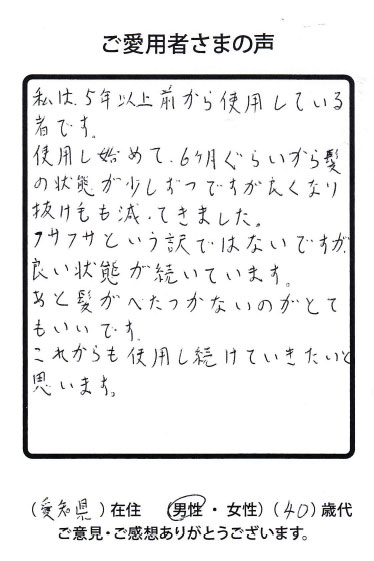 ご愛用者さまの声
私は、5年以上前から使用している
者です。
使用し始めて、6ヶ月ぐらいから髪
の状態が少しずつですが良くなり
抜け毛も減ってきました。
フサフサという訳ではないですが、
良い状態が続いています。
あと髪がべたつかないのがとて
もいいです。
これからも使用し続けていきたいと
思います。
(愛知県)在住 (男性・女性)(40)歳代
ご意見・ご感想ありがとうございます。